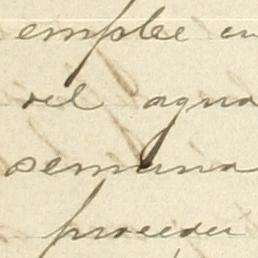 emplee en
del agua
semana
proceder